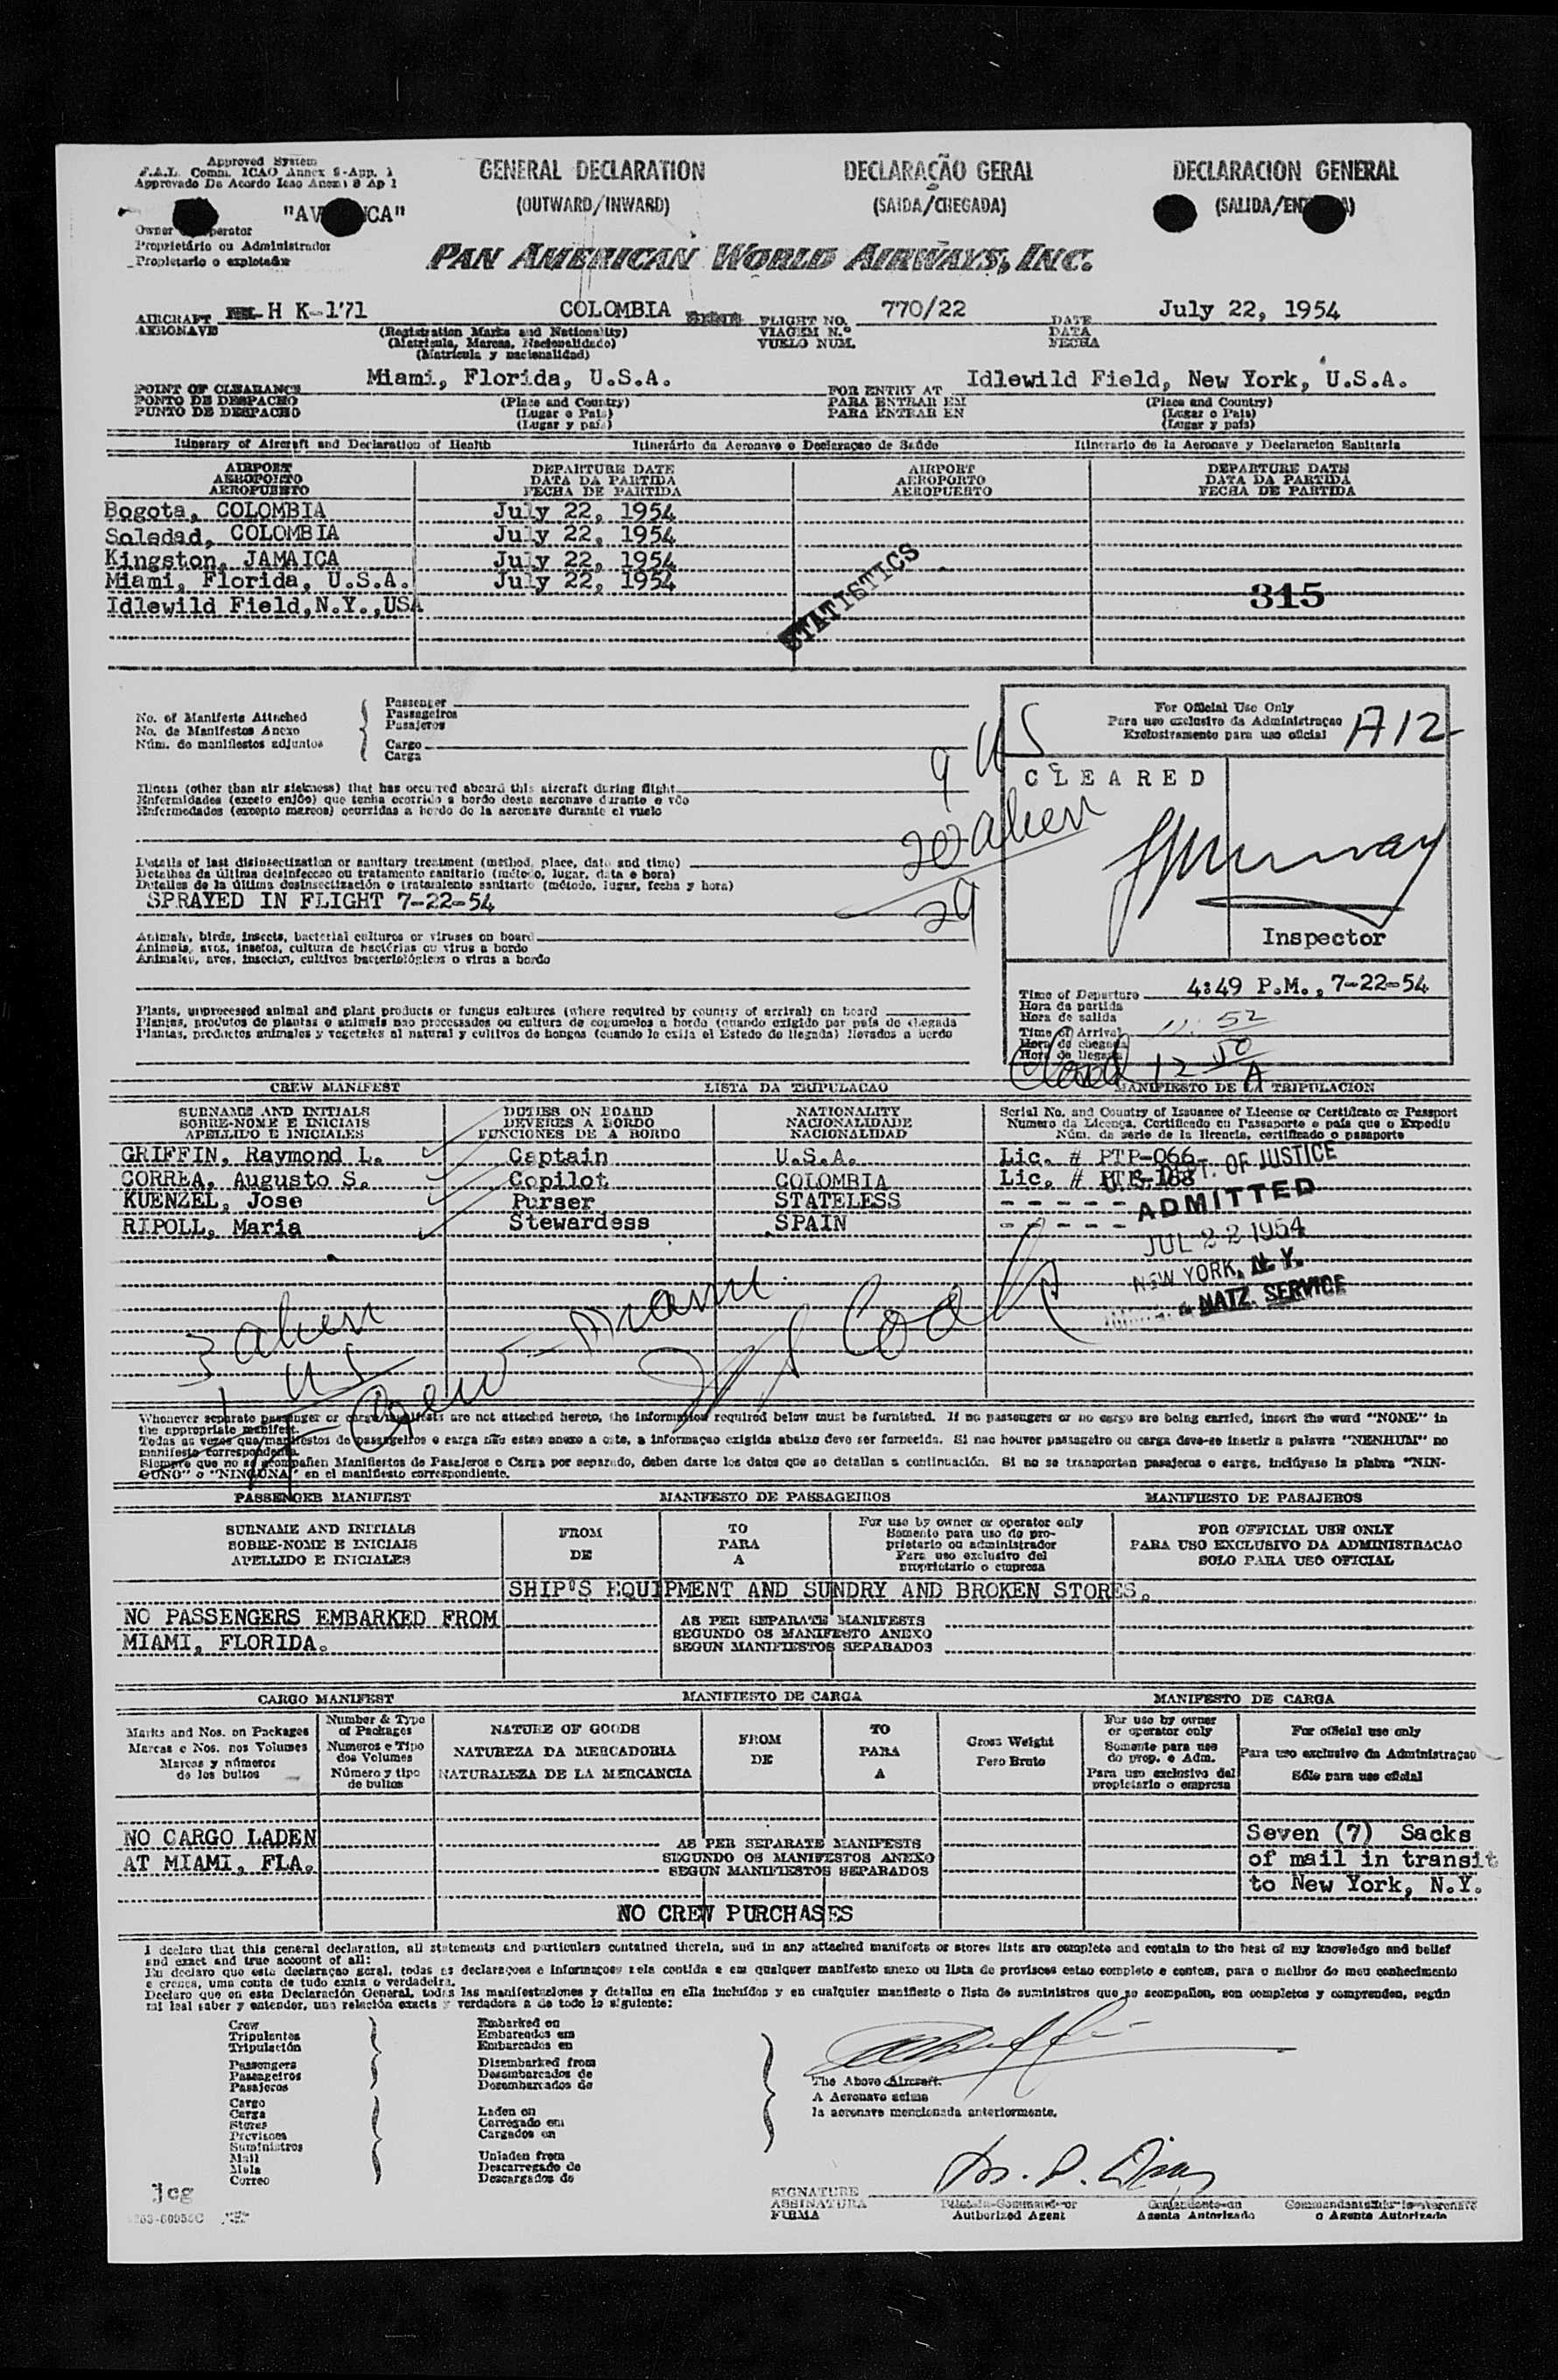 Approved System
F.A.L. Comm. ICAO Annex 9-App. 1
Approvado De Acordo Icao Anexo 9 Ap 1
GENERAL DECLARATION
(OUTWARD/INWARD)
DECLARAÇÃO GERAL
(SAIDA/CHEGADA)
DECLARACION GENERAL
(SALIDA/EN A)
"AV CA"
Owner perator
Proprietário ou Administrador
Propietario o explotador
PAN AMERICAN WORLD AIRWAYS, INC.
AIRCRAFT H K-171 COLOMBIA FLIGHT NO. 770/22 DATE July 22, 1954
AERONAVE (Registration Marks and Nationality) VIAGEM N.º DATA
(Matricula, Marcas, Nacionalidade) VUELO NUM. FECHA
(Matricula y nacionalidad)
POINT OF CLEARANCE Miami, Florida, U.S.A. FOR ENTRY AT Idlewild Field, New York, U.S.A.
PONTO DE DESPACHO (Place and Country) PARA ENTRAR EM (Place and Country)
PUNTO DE DESPACHO (Lugar e Pais) PARA ENTRAR EN (Lugar e Pais)
(Lugar y país) (Lugar y país)
Itinerary of Aircraft and Declaration of Health Itinerário da Aeronave e Declaraçao de Saúde Itinerario de la Aeronave y Declaracion Sanitaria
AIRPORT DEPARTURE DATE AIRPORT DEPARTURE DATE
AEROPORTO DATA DA PARTIDA AEROPORTO DATA DA PARTIDA
AEROPUERTO FECHA DE PARTIDA AEROPUERTO FECHA DE PARTIDA
Bogota, COLOMBIA July 22, 1954
Soledad, COLOMBIA July 22, 1954
Kingston, JAMAICA July 22, 1954
Miami, Florida, U.S.A. July 22, 1954
Idlewild Field,N.Y.,USA
STATISTICS
315
No. of Manifests Attached
No. de Manifestos Anexo
Núm. de manifiestos adjuntos
Passenger
Passageiros
Pasajeros
Cargo
Carga
For Official Use Only
Para uso exclusivo da Administraçao
Exclusivamente para uso oficial
A12
CLEARED
Inspector
9 US
20 alien
29
Illness (other than air sickness) that has occurred aboard this aircraft during flight
Enfermidades (exceto enjôo) que tenha ocorrido a bordo deste aeronave durante o vôo
Enfermedades (excepto mareos) ocurridas a bordo de la aeronave durante el vuelo
Details of last disinsectization or sanitary treatment (method, place, date and time)
Detalhes da última desinfeccao ou tratamento sanitario (método, lugar, data e hora)
Detalles de la última desinsectización o tratamiento sanitario (método, lugar, fecha y hora)
SPRAYED IN FLIGHT 7-22-54
Animals, birds, insects, bacterial cultures or viruses on board
Animais, aves, insetos, cultura de bactérias ou virus a bordo
Animales, aves, insectos, cultivos bacteriológicos o virus a bordo
Plants, unprocessed animal and plant products or fungus cultures (where required by country of arrival) on board
Plantas, produtos de plantas e animais nao processados ou cultura de cogumelos a bordo (quando exigido por pais de chegada
Plantas, productos animales y vegetales al natural y cultivos de hongos (cuando lo exija el Estado de llegada) llevados a bordo
Time of Departure 4:49 P.M., 7-22-54
Hora da partida
Hora de salida
Time of Arrival 11:52
Hora de chegada
Hora de llegada
Closed 12 50 A
CREW MANIFEST LISTA DA TRIPULACAO MANIFIESTO DE LA TRIPULACION
SURNAME AND INITIALS DUTIES ON BOARD NATIONALITY Serial No. and Country of Issuance of License or Certificate or Passport
SOBRE-NOME E INICIAIS DEVERES A BORDO NACIONALIDADE Numero da Licença, Certificado ou Passaporte e pais que o Expediu
APELLIDO E INICIALES FUNCIONES DE A BORDO NACIONALIDAD Núm. de serie de la licencia, certificado o pasaporte
GRIFFIN, Raymond L. Captain U.S.A. Lic. # PTP-066
CORREA, Augusto S. Copilot COLOMBIA Lic. #
KUENZEL, Jose Purser STATELESS - - - - -
RIPOLL, Maria Stewardess SPAIN - - - - -
DEPT. OF JUSTICE
ADMITTED
JUL 22 1954
NEW YORK, N. Y.
& NATZ. SERVICE
3 alien
1 US
4 Crew - Miami
Whenever separate passenger or cargo manifests are not attached hereto, the information required below must be furnished. If no passengers or no cargo are being carried, insert the word "NONE" in
the appropriate manifest.
Todas as vezes que manifestos de passageiros e carga não estao anexo a este, a informaçao exigida abaixo deve ser fornecida. Si nao houver passageiro ou carga deve-se inserir a palavra "NENHUM" no
manifesto correspondente.
Siempre que no se acompañen Manifiestos de Pasajeros o Carga por separado, deben darse los datos que se detallan a continuación. Si no se transportan pasajeros o carga, inclúyase la plabra "NIN-
GUNO" o "NINGUNA" en el manifiesto correspondiente.
PASSENGER MANIFEST MANIFESTO DE PASSAGEIROS MANIFIESTO DE PASAJEROS
SURNAME AND INITIALS
SOBRE-NOME E INICIAIS
APELLIDO E INICIALES
FROM
DE
TO
PARA
A
For use by owner or operator only
Somente para uso do pro-
prietario ou administrador
Para uso exclusivo del
proprietario o empresa
FOR OFFICIAL USE ONLY
PARA USO EXCLUSIVO DA ADMINISTRACAO
SOLO PARA USO OFICIAL
SHIP'S EQUIPMENT AND SUNDRY AND BROKEN STORES.
NO PASSENGERS EMBARKED FROM AS PER SEPARATE MANIFESTS
SEGUNDO OS MANIFESTO ANEXO
MIAMI, FLORIDA. SEGUN MANIFIESTOS SEPARADOS
CARGO MANIFEST MANIFIESTO DE CARGA MANIFESTO DE CARGA
Marks and Nos. on Packages
Marcas e Nos. nos Volumes
Marcas y números
de los bultos
Number & Type
of Packages
Numeros e Tipo
dos Volumes
Número y tipo
de bultos
NATURE OF GOODS
NATUREZA DA MERCADORIA
NATURALEZA DE LA MERCANCIA
FROM
DE
TO
PARA
A
Gross Weight
Peso Bruto
For use by owner
or operator only
Somente para use
do prop. e Adm.
Para uso exclusivo del
propietario o empresa
For official use only
Para uso exclusivo da Administraçao
Sólo para use oficial
NO CARGO LADEN AS PER SEPARATE MANIFESTS Seven (7) Sacks
AT MIAMI, FLA. SEGUNDO OS MANIFESTOS ANEXO of mail in transit
SEGUN MANIFIESTOS SEPARADOS to New York, N.Y.
NO CREW PURCHASES
I declare that this general declaration, all statements and particulars contained therein, and in any attached manifests or stores lists are complete and contain to the best of my knowledge and belief
and exact and true account of all:
Eu declaro que esta declaraçao geral, todas as declaraçoes e informaçoes nela contida e em qualquer manifesto anexo ou lista de provisoes estao completo e contem, para o melhor do meu conhecimento
e crença, uma conta de tudo exata o verdadeira.
Declaro que en esta Declaración General, todas las manifestaciones y detalles en ella incluídos y en cualquier manifiesto o lista de suministros que se acompañen, son completos y comprenden, según
mi leal saber y entender, una relación exacta y verdadera a de todo lo siguiente:
Crew
Tripulantes
Tripulación
Passengers
Passageiros
Pasajeros
Cargo
Carga
Stores
Previsoes
Suministros
Mail
Mala
Correo
Embarked on
Embarcados em
Embarcados en
Disembarked from
Desembarcados de
Desembarcados de
Laden on
Carregado em
Cargados en
Unladen from
Descarregado de
Descargados de
The Above Aircraft.
A Aeronave acima
la aeronave mencionada anteriormente.
jcg
SIGNATURE
ASSINATURA
FIRMA
Pilot-in-Command or
Authorized Agent
Agente Autorizado
o Agente Autorizado